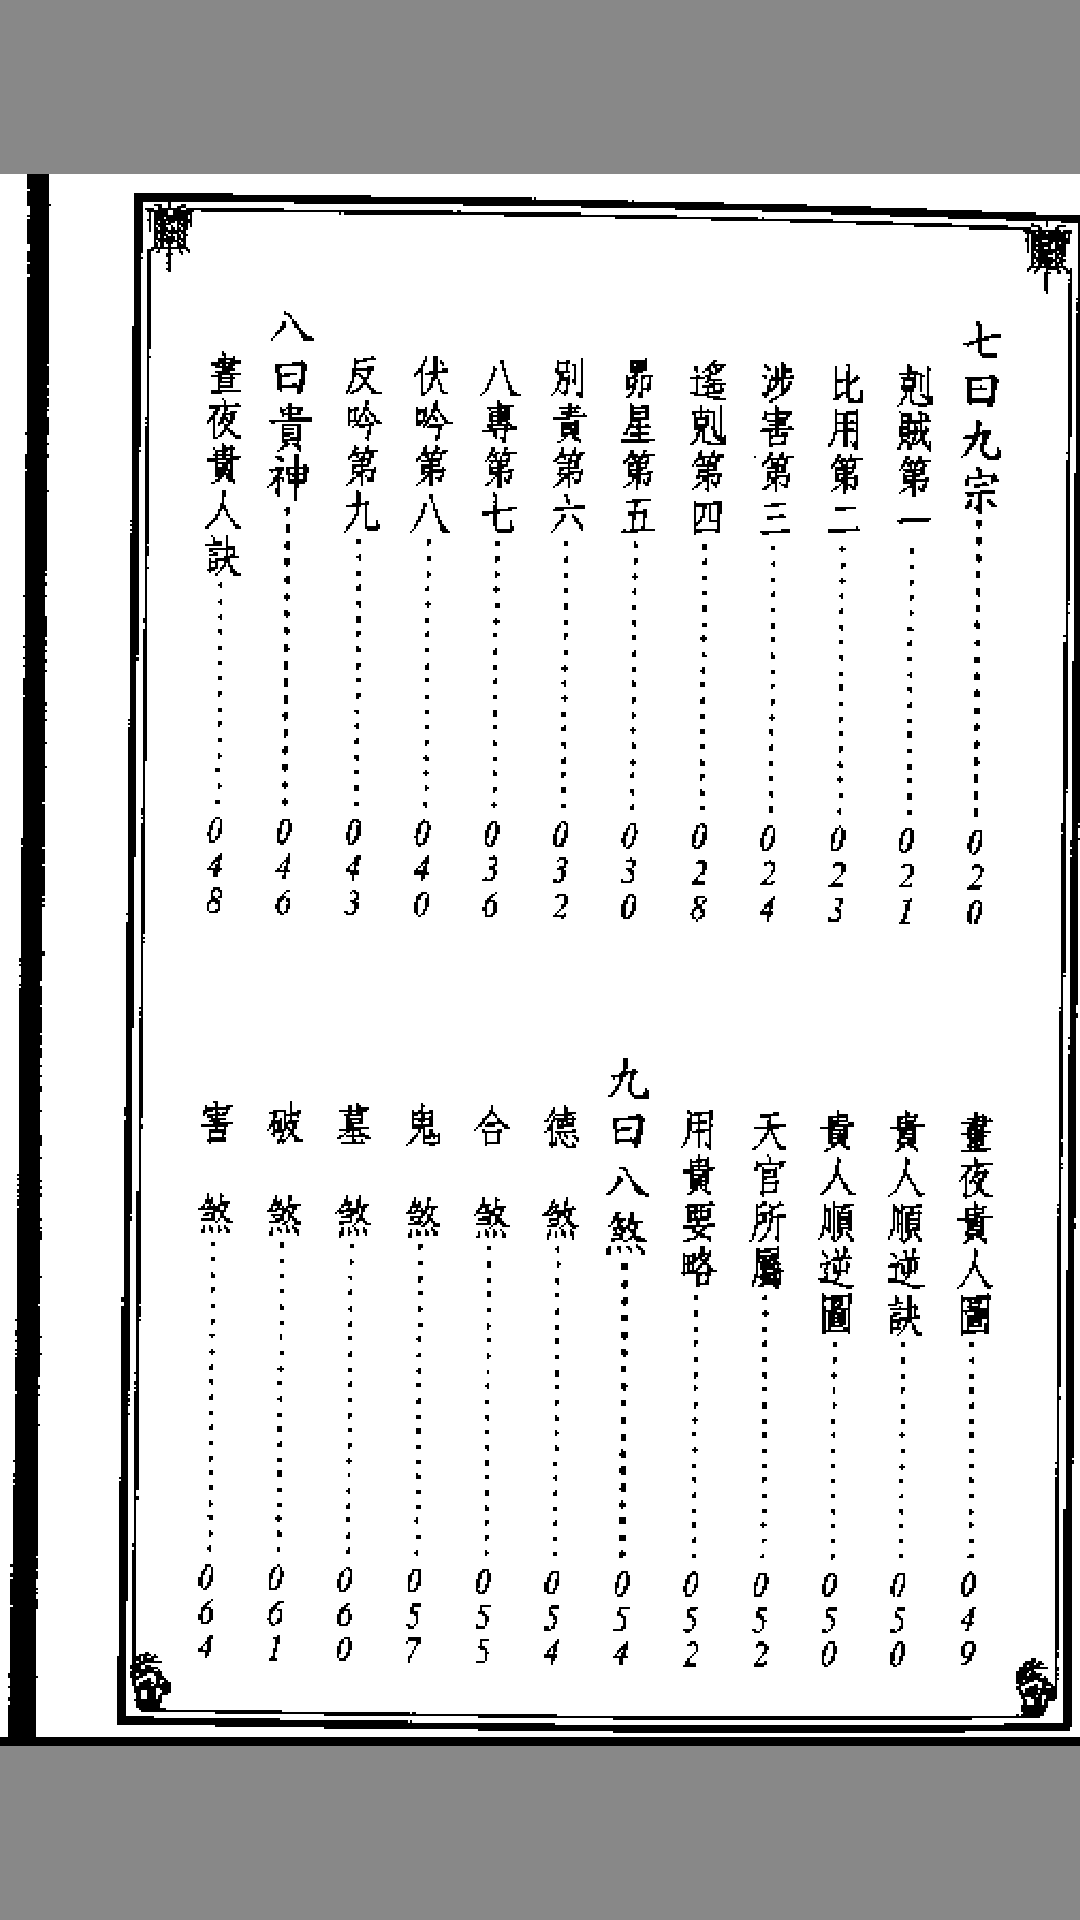 七曰九宗 020
剋賊第一 021
比用第二 023
涉害第三 024
遙剋第四 028
昴星第五 030
別責第六 032
八專第七 036
伏吟第八 040
反吟第九 043
八曰貴神 046
晝夜貴人訣 048
晝夜貴人圖 049
貴人順逆訣 050
貴人順逆圖 050
天官所屬 052
用貴要略 052
九曰八煞 054
德煞 054
合煞 055
鬼煞 057
墓煞 060
破煞 061
害煞 064